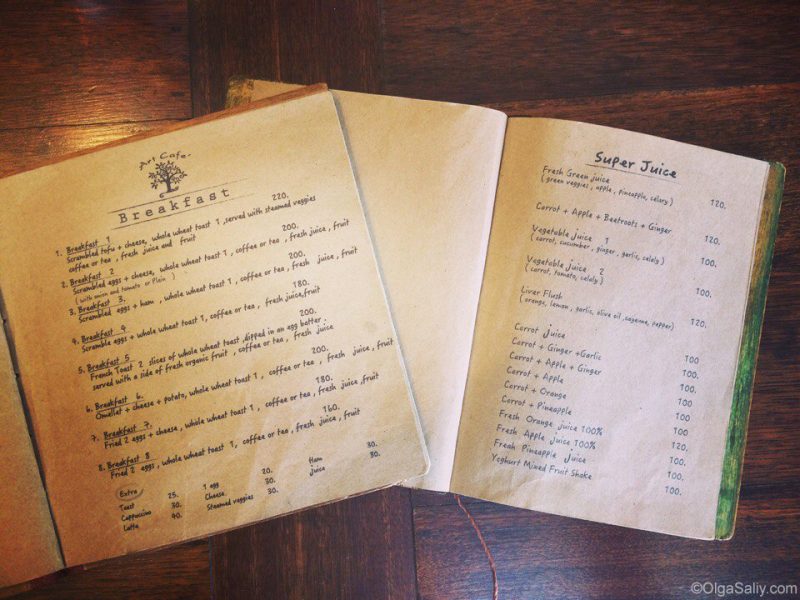 Art Cafe
Breakfast
1. Breakfast 1 220.
Scrambled tofu + cheese, whole wheat toast 1, served with steamed veggies
coffee or tea, fresh juice and fruit
2. Breakfast 2 200.
Scrambled eggs + cheese, whole wheat toast 1, coffee or tea, fresh juice, fruit
(with onion and tomato or Plain)
3. Breakfast 3. 200.
Scrambled eggs + ham, whole wheat toast 1, coffee or tea, fresh juice, fruit
4. Breakfast 4 180.
Scramble eggs + whole wheat toast 1, coffee or tea, fresh juice, fruit
5. Breakfast 5 200.
French Toast 2 slices of whole wheat toast, dipped in an egg batter.
served with a side of fresh organic fruit, coffee or tea, fresh juice
6. Breakfast 6. 200.
Omellet + cheese + potato, whole wheat toast 1, coffee or tea, fresh juice, fruit
7. Breakfast 7. 180.
Fried 2 eggs + cheese, whole wheat toast 1, coffee or tea, fresh juice, fruit
8. Breakfast 8 160.
Fried 2 eggs, whole wheat toast 1, coffee or tea, fresh juice, fruit
Extra
Toast 25. 1 egg 20. Ham 30.
Cappuccino 30. Cheese 30. Juice 80.
Latta 40. Steamed veggies 30.
Super Juice
Fresh Green juice 120.
(green veggies, apple, pineapple, celary)
Carrot + Apple + Beetroots + Ginger 120.
Vagatable juice 1 100.
(carrot, cucumber, ginger, garlic, celaly)
Vagatable juice 2 100.
(carrot, tomato, celaly)
Liver Flush 120.
(orange, lemon, garlic, olive oil, cayenne, pepper)
Carrot juice 100
Carrot + Ginger + Garlic 100
Carrot + Apple + Ginger 100.
Carrot + Apple 100
Carrot + Orange 100
Carrot + Pineapple 100
Fresh Orange juice 100% 120.
Fresh Apple juice 100% 100.
Fresh Pineapple juice 100.
Yoghurt Mixed Fruit Shake 100.
©OlgaSaliy.com